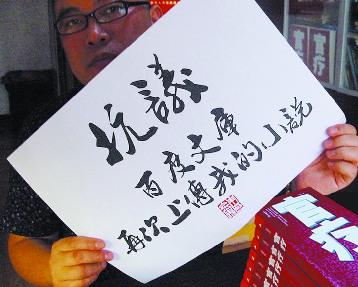 抗議
百度文庫
再次上傳我的小说